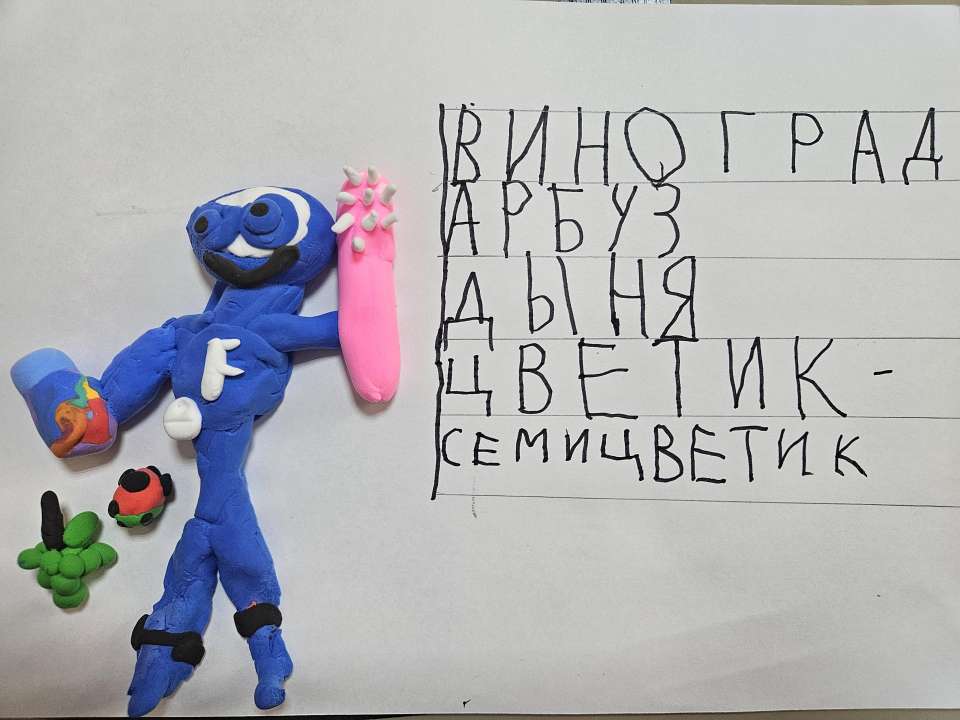 ВИНОГРАД
АРБУЗ
ДЫНЯ
ЦВЕТИК-
СЕМИЦВЕТИК